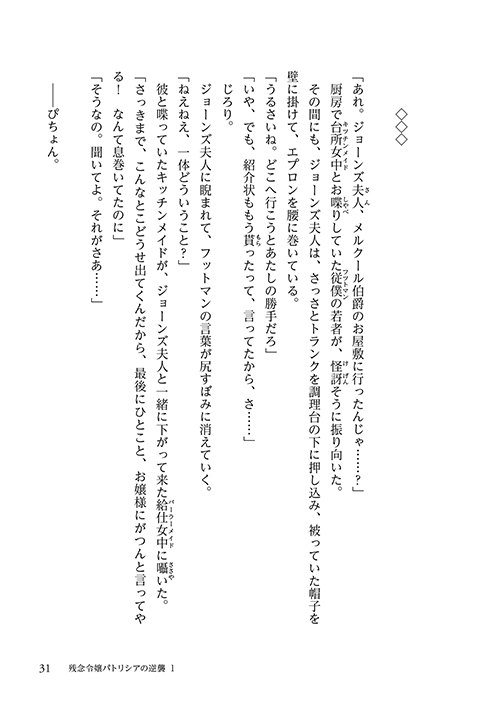 ◇◇◇
「あれ。ジョーンズ夫人、メルクール伯爵のお屋敷に行ったんじゃ……？」
厨房で台所女中とお喋りしていた従僕の若者が、怪訝そうに振り向いた。
その間にも、ジョーンズ夫人は、さっさとトランクを調理台の下に押し込み、被っていた帽子を
壁に掛けて、エプロンを腰に巻いている。
「うるさいね。どこへ行こうとあたしの勝手だろ」
「いや、でも、紹介状ももう貰ったって、言ってたから、さ……」
じろり。
ジョーンズ夫人に睨まれて、フットマンの言葉が尻すぼみに消えていく。
「ねえねえ、一体どういうこと？」
彼と喋っていたキッチンメイドが、ジョーンズ夫人と一緒に下がって来た給仕女中に囁いた。
「さっきまで、こんなとこどうせ出てくんだから、最後にひとこと、お嬢様にがつんと言ってや
る！　なんて息巻いてたのに」
「そうなの。聞いてよ。それがさあ……」
――ぴちょん。
31　残念令嬢パトリシアの逆襲 1